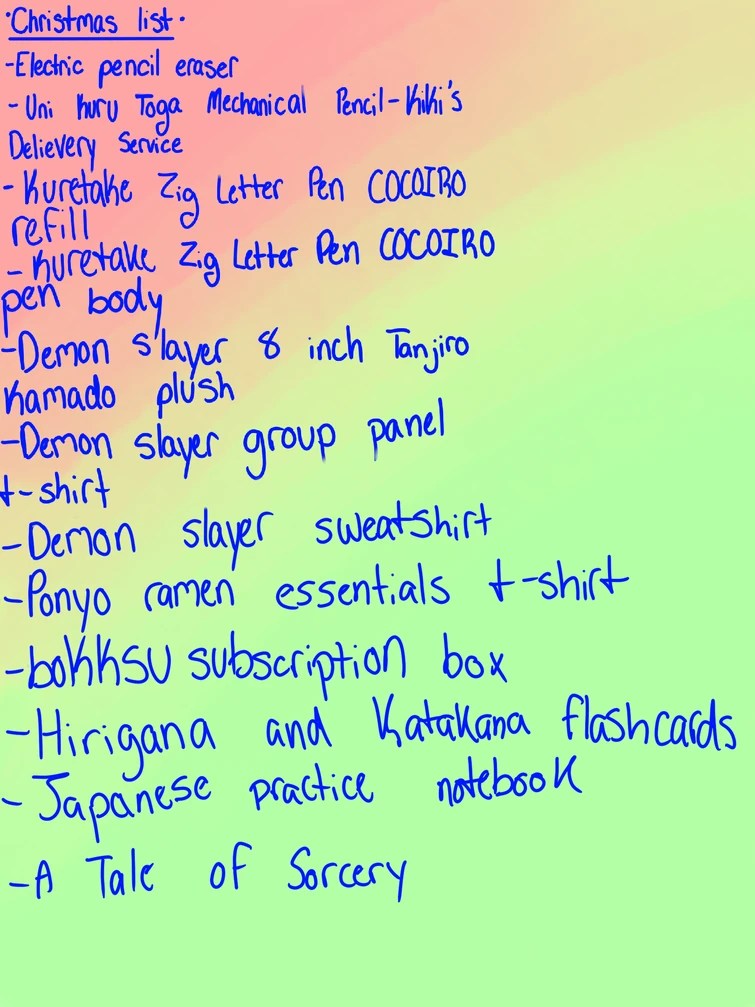 ·Christmas list·
-Electric pencil eraser
-Uni Kuru Toga Mechanical Pencil-Kiki's
Delievery Service
-Kuretake Zig Letter Pen COCOIRO
refill
-Kuretake Zig Letter Pen COCOIRO
pen body
-Demon slayer 8 inch Tanjiro
Kamado plush
-Demon slayer group panel
t-shirt
-Demon slayer sweatshirt
-Ponyo ramen essentials t-shirt
-boKKSU subscription box
-Hirigana and Katakana flashcards
-Japanese practice notebook
-A Tale of Sorcery